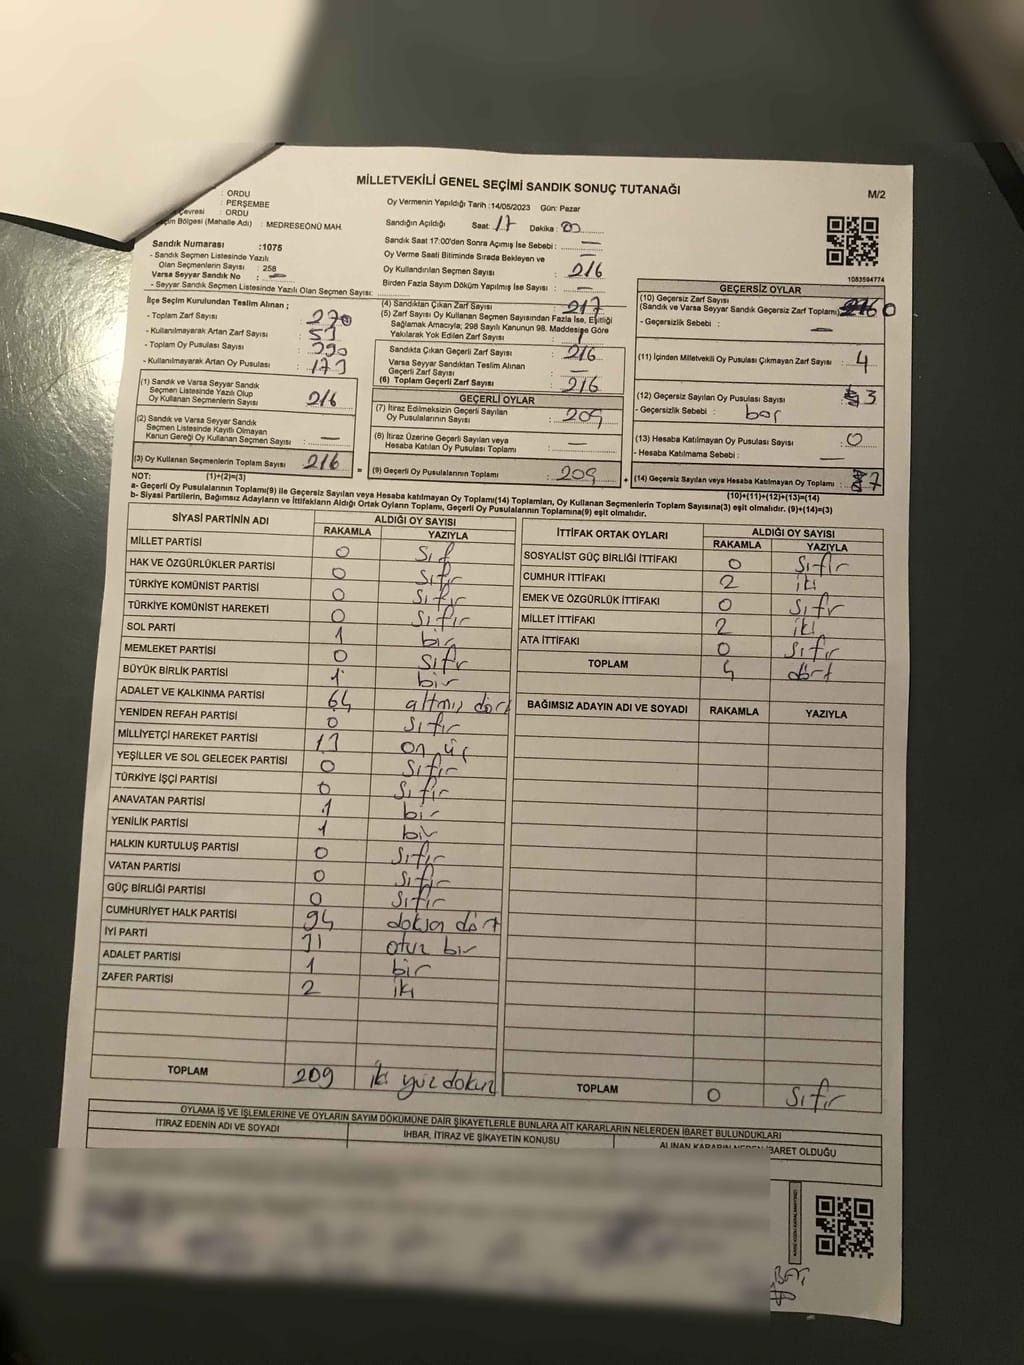 MİLLETVEKİLİ GENEL SEÇİMİ SANDIK SONUÇ TUTANAĞI
M/2
: ORDU
: PERŞEMBE
: ORDU
(Mahalle Adı) : MEDRESEÖNÜ MAH.
Oy Vermenin Yapıldığı Tarih :14/05/2023 Gün: Pazar
Sandığın Açıldığı Saat: 17 Dakika :
Sandık Saat 17:00'den Sonra Açılmış İse Sebebi : —
Oy Verme Saati Bitiminde Sırada Bekleyen ve
Oy Kullandırılan Seçmen Sayısı : 216
Birden Fazla Sayım Döküm Yapılmış İse Sayısı : —
Sandık Numarası :1075
- Sandık Seçmen Listesinde Yazılı
Olan Seçmenlerin Sayısı : 258
Varsa Seyyar Sandık No : —
- Seyyar Sandık Seçmen Listesinde Yazılı Olan Seçmen Sayısı:
1083594774
İlçe Seçim Kurulundan Teslim Alınan ;
- Toplam Zarf Sayısı : 270
- Kullanılmayarak Artan Zarf Sayısı : 53
- Toplam Oy Pusulası Sayısı : 390
- Kullanılmayarak Artan Oy Pusulası : 173
(1) Sandık ve Varsa Seyyar Sandık
Seçmen Listesinde Yazılı Olup
Oy Kullanan Seçmenlerin Sayısı : 216
(2) Sandık ve Varsa Seyyar Sandık
Seçmen Listesinde Kayıtlı Olmayan
Kanun Gereği Oy Kullanan Seçmen Sayısı : —
(3) Oy Kullanan Seçmenlerin Toplam Sayısı : 216
(4) Sandıktan Çıkan Zarf Sayısı : 217
(5) Zarf Sayısı Oy Kullanan Seçmen Sayısından Fazla İse, Eşitliği
Sağlamak Amacıyla; 298 Sayılı Kanunun 98. Maddesine Göre
Yakılarak Yok Edilen Zarf Sayısı : 1
Sandıkta Çıkan Geçerli Zarf Sayısı : 216
Varsa Seyyar Sandıktan Teslim Alınan
Geçerli Zarf Sayısı : —
(6) Toplam Geçerli Zarf Sayısı : 216
GEÇERLİ OYLAR
(7) İtiraz Edilmeksizin Geçerli Sayılan
Oy Pusulalarının Sayısı : 209
(8) İtiraz Üzerine Geçerli Sayılan veya
Hesaba Katılan Oy Pusulası Toplamı : —
= (9) Geçerli Oy Pusulalarının Toplamı : 209
GEÇERSİZ OYLAR
(10) Geçersiz Zarf Sayısı
(Sandık ve Varsa Seyyar Sandık Geçersiz Zarf Toplamı) 0
- Geçersizlik Sebebi : —
(11) İçinden Milletvekili Oy Pusulası Çıkmayan Zarf Sayısı : 4
(12) Geçersiz Sayılan Oy Pusulası Sayısı : 3
- Geçersizlik Sebebi : boş
(13) Hesaba Katılmayan Oy Pusulası Sayısı : 0
- Hesaba Katılmama Sebebi : —
+ (14) Geçersiz Sayılan veya Hesaba Katılmayan Oy Toplamı : 7
NOT: (1)+(2)=(3)
(10)+(11)+(12)+(13)=(14)
a- Geçerli Oy Pusulalarının Toplamı(9) ile Geçersiz Sayılan veya Hesaba katılmayan Oy Toplamı(14) Toplamları, Oy Kullanan Seçmenlerin Toplam Sayısına(3) eşit olmalıdır. (9)+(14)=(3)
b- Siyasi Partilerin, Bağımsız Adayların ve İttifakların Aldığı Ortak Oyların Toplamı, Geçerli Oy Pusulalarının Toplamına(9) eşit olmalıdır.
SİYASİ PARTİNİN ADI ALDIĞI OY SAYISI
RAKAMLA YAZIYLA
MİLLET PARTİSİ 0 sıf
HAK VE ÖZGÜRLÜKLER PARTİSİ 0 sıfır
TÜRKİYE KOMÜNİST PARTİSİ 0 sıfır
TÜRKİYE KOMÜNİST HAREKETİ 0 sıfır
SOL PARTİ 1 bir
MEMLEKET PARTİSİ 0 sıfır
BÜYÜK BİRLİK PARTİSİ 1 bir
ADALET VE KALKINMA PARTİSİ 64 altmış dört
YENİDEN REFAH PARTİSİ 0 sıfır
MİLLİYETÇİ HAREKET PARTİSİ 13 on üç
YEŞİLLER VE SOL GELECEK PARTİSİ 0 sıfır
TÜRKİYE İŞÇİ PARTİSİ 0 sıfır
ANAVATAN PARTİSİ 1 bir
YENİLİK PARTİSİ 1 bir
HALKIN KURTULUŞ PARTİSİ 0 sıfır
VATAN PARTİSİ 0 sıfır
GÜÇ BİRLİĞİ PARTİSİ 0 sıfır
CUMHURİYET HALK PARTİSİ 94 doksan dört
İYİ PARTİ 31 otuz bir
ADALET PARTİSİ 1 bir
ZAFER PARTİSİ 2 iki
TOPLAM 209 iki yüz dokuz
İTTİFAK ORTAK OYLARI ALDIĞI OY SAYISI
RAKAMLA YAZIYLA
SOSYALİST GÜÇ BİRLİĞİ İTTİFAKI 0 sıfır
CUMHUR İTTİFAKI 2 iki
EMEK VE ÖZGÜRLÜK İTTİFAKI 0 sıfır
MİLLET İTTİFAKI 2 iki
ATA İTTİFAKI 0 sıfır
TOPLAM 4 dört
BAĞIMSIZ ADAYIN ADI VE SOYADI RAKAMLA YAZIYLA
TOPLAM 0 sıfır
OYLAMA İŞ VE İŞLEMLERİNE VE OYLARIN SAYIM DÖKÜMÜNE DAİR ŞİKAYETLERLE BUNLARA AİT KARARLARIN NELERDEN İBARET BULUNDUKLARI
İTİRAZ EDENİN ADI VE SOYADI İHBAR, İTİRAZ VE ŞİKAYETİN KONUSU ALINAN KARARIN NEDEN İBARET OLDUĞU